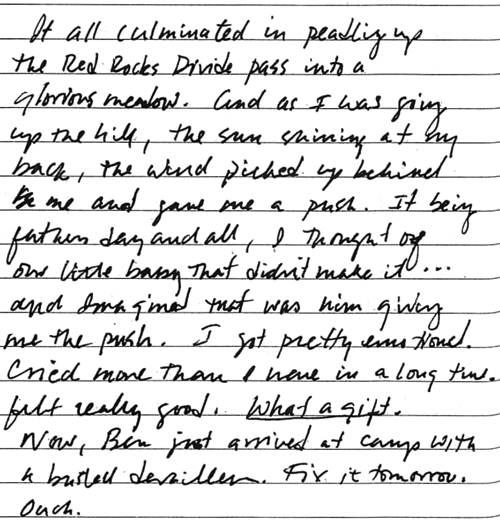 It all culminated in peadling up
the Red Rocks Divide pass into a
glorious meadow. And as I was going
up the hill, the sun shining at my
back, the wind picked up behind
me and gave me a push. It being
fathers day and all, I thought of
our little baby that didn't make it...
and Imagined that was him giving
me the push. I got pretty emotional.
Cried more than I have in a long time.
felt really good. What a gift.
Now, Ben just arrived at camp with
a busted derailleur. Fix it tomorrow.
Ouch.